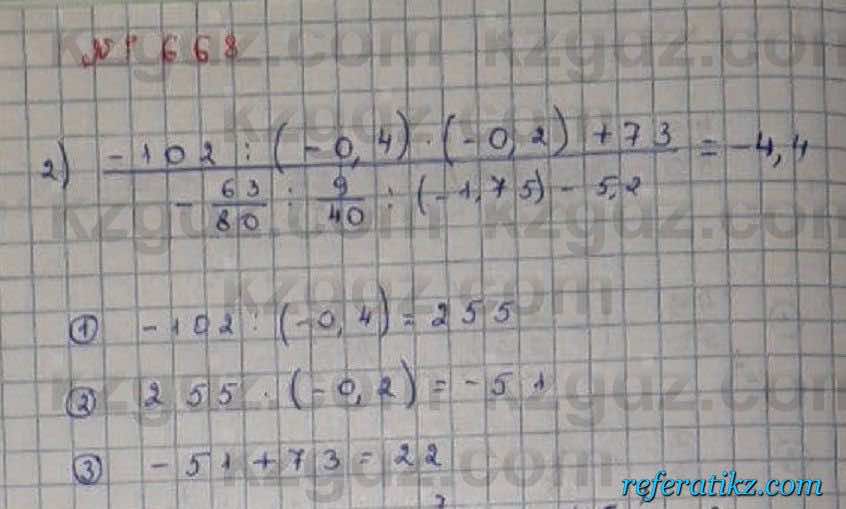 № 668
2) (-102 : (-0,4) · (-0,2) + 73) / (-63/80 : 9/40 : (-1,75) - 5,2) = -4,4
① -102 : (-0,4) = 255
② 255 · (-0,2) = -51
③ -51 + 73 = 22
referatikz.com
kzgdz.com